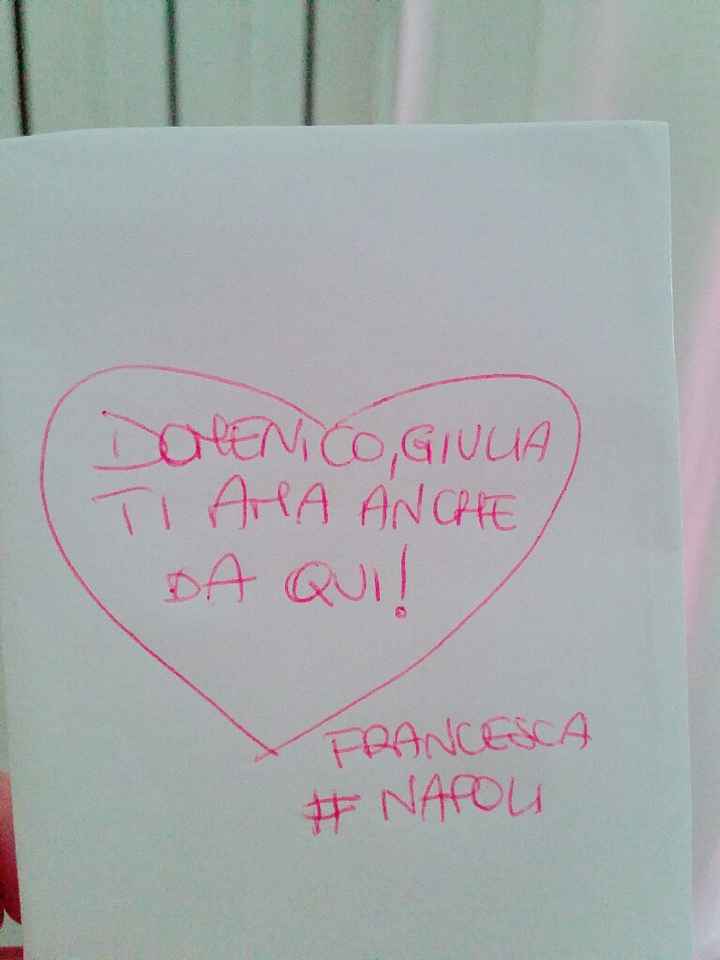 DOMENICO, GIULIA
TI AMA ANCHE
DA QUI!
FRANCESCA
# NAPOLI